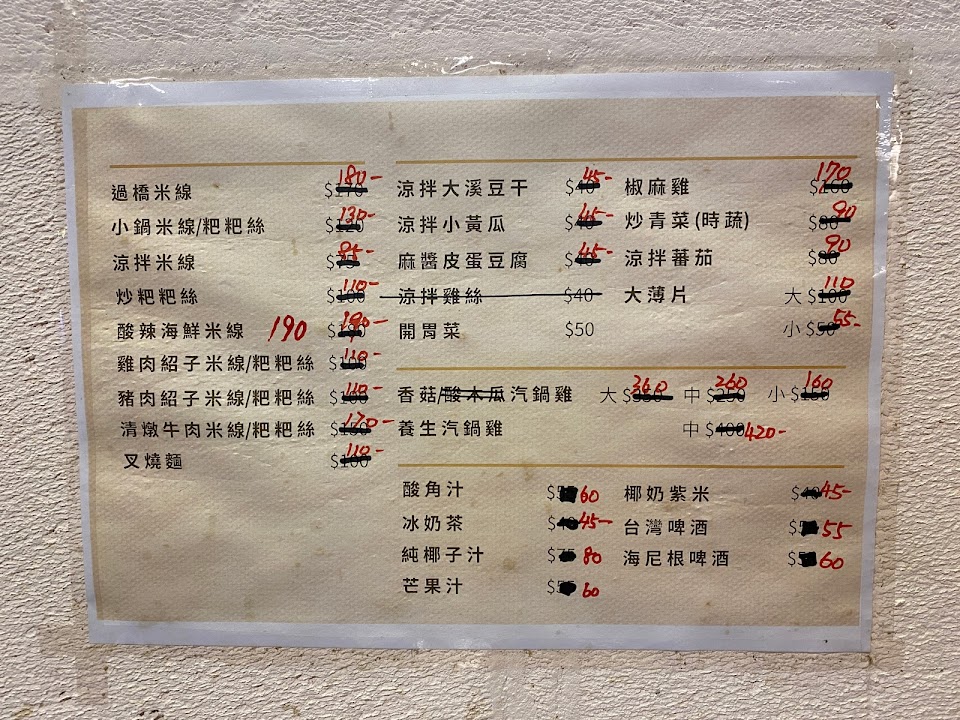 過橋米線 $170 180-
小鍋米線/粑粑絲 $120 130-
涼拌米線 $75 85-
炒粑粑絲 $100 110-
酸辣海鮮米線 190 190-
雞肉紹子米線/粑粑絲 $100 110-
豬肉紹子米線/粑粑絲 $100 110-
清燉牛肉米線/粑粑絲 $150 170-
叉燒麵 $100 110-
涼拌大溪豆干 $40 45-
涼拌小黃瓜 $40 45-
麻醬皮蛋豆腐 $40 45-
涼拌雞絲 $40
開胃菜 $50
椒麻雞 $160 170
炒青菜(時蔬) $80 90
涼拌蕃茄 $80 90
大薄片 大 $100 110
小 $50 55-
香菇/酸木瓜汽鍋雞 大 $350 360 中 $250 260 小 $150 160
養生汽鍋雞 中 $400 420-
酸角汁 60
冰奶茶 45-
純椰子汁 $75 80
芒果汁 60
椰奶紫米 $40 45-
台灣啤酒 55
海尼根啤酒 60